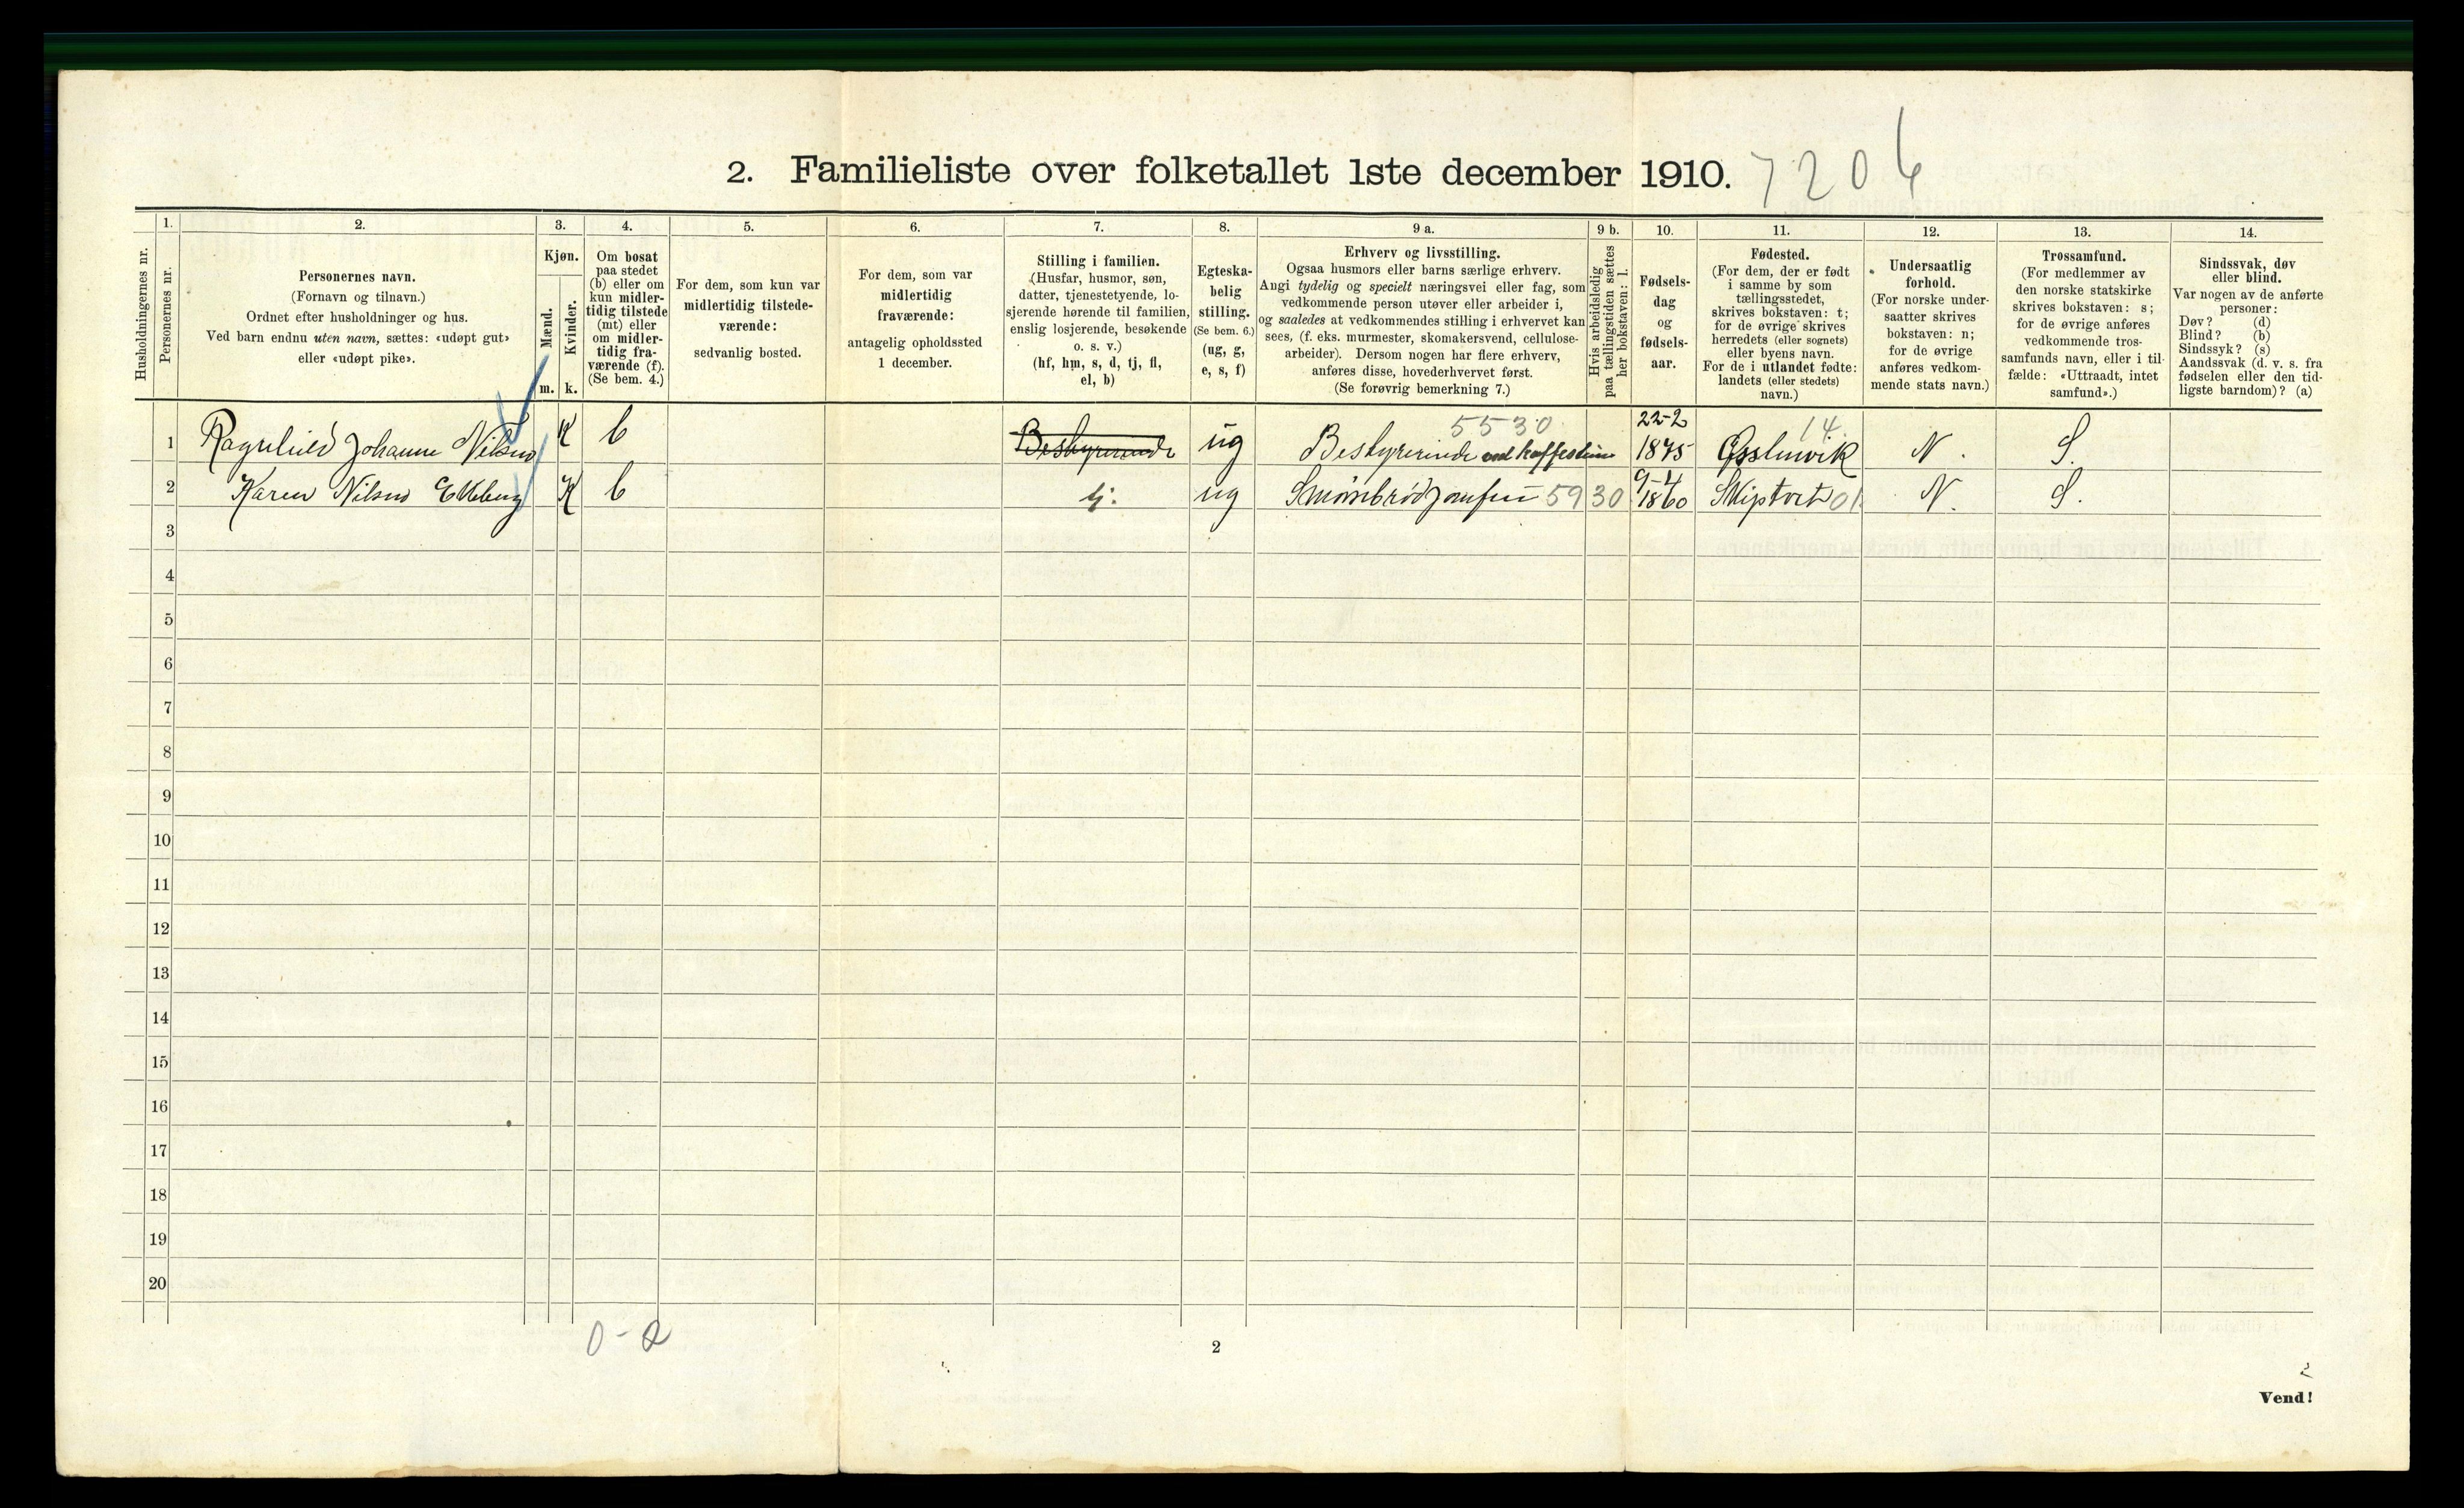 2. Familieliste over folketallet 1ste december 1910. 7206
Husholdningernes nr.
1.
Personernes nr.
2.
Personernes navn.
(Fornavn og tilnavn.)
Ordnet efter husholdninger og hus.
Ved barn endnu uten navn, sættes: «udøpt gut»
eller «udøpt pike».
3.
Kjøn.
Mænd.
Kvinder.
m. k.
4.
Om bosat
paa stedet
(b) eller om
kun midler-
tidig tilstede
(mt) eller
om midler-
tidig fra-
værende (f).
(Se bem. 4.)
5.
For dem, som kun var
midlertidig tilstede-
værende:
sedvanlig bosted.
6.
For dem, som var
midlertidig
fraværende:
antagelig opholdssted
1 december.
7.
Stilling i familien.
(Husfar, husmor, søn,
datter, tjenestetyende, lo-
sjerende hørende til familien,
enslig losjerende, besøkende
o. s. v.)
(hf, hm, s, d, tj, fl,
el, b)
8.
Egteska-
belig
stilling.
(Se bem. 6.)
(ug, g,
e, s, f)
9 a.
Erhverv og livsstilling.
Ogsaa husmors eller barns særlige erhverv.
Angi tydelig og specielt næringsvei eller fag, som
vedkommende person utøver eller arbeider i,
og saaledes at vedkommendes stilling i erhvervet kan
sees, (f. eks. murmester, skomakersvend, cellulose-
arbeider). Dersom nogen har flere erhverv,
anføres disse, hovederhvervet først.
(Se forøvrig bemerkning 7.)
9 b.
Hvis arbeidsledig
paa tællingstiden sættes
her bokstaven: l.
10.
Fødsels-
dag
og
fødsels-
aar.
11.
Fødested.
(For dem, der er født
i samme by som
tællingsstedet,
skrives bokstaven: t;
for de øvrige skrives
herredets (eller sognets)
eller byens navn.
For de i utlandet fødte:
landets (eller stedets)
navn.)
12.
Undersaatlig
forhold.
(For norske under-
saatter skrives
bokstaven: n;
for de øvrige
anføres vedkom-
mende stats navn.)
13.
Trossamfund.
(For medlemmer av
den norske statskirke
skrives bokstaven: s;
for de øvrige anføres
vedkommende tros-
samfunds navn, eller i til-
fælde: «Uttraadt, intet
samfund».)
14.
Sindssvak, døv
eller blind.
Var nogen av de anførte
personer:
Døv? (d)
Blind? (b)
Sindssyk? (s)
Aandssvak (d. v. s. fra
fødselen eller den tid-
ligste barndom)? (a)
5530 22-2 14
1 Ragnhild Johanne Nilsen K b Bestyrerinde ug Bestyrerinde ved kaffestue 1875 N. S.
9-4
2 Karen Nilsen Ekeberg K b tj. ug Smørrebrødjomfru 5930 1860 Skiptvet 01 N. S.
3
4
5
6
7
8
9
10
11
12
13
14
15
16
17
18
19
20
0-2
2
Vend!